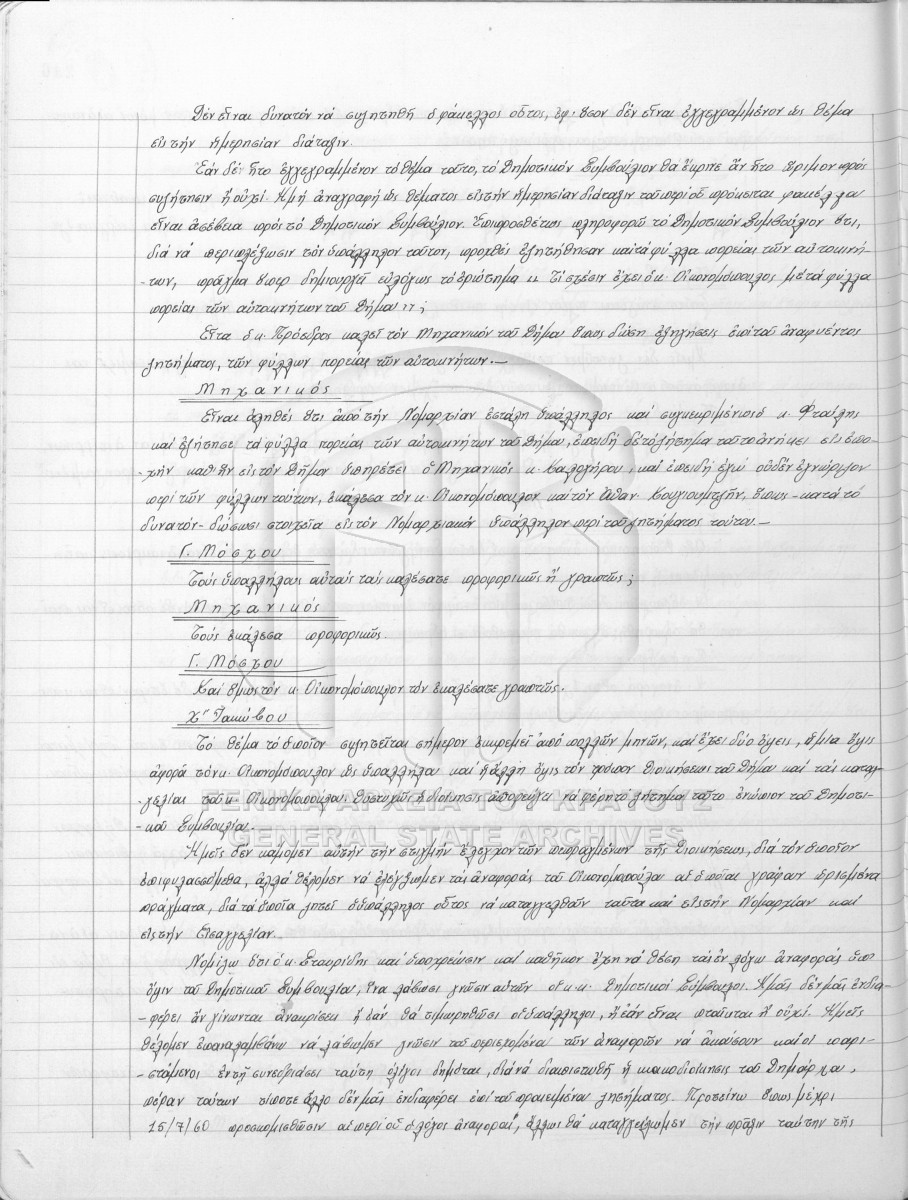 Δέν εἶναι δυνατόν νά συζητηθῇ ὁ φάκελλος οὗτος, ἐφ' ὅσον δέν εἶναι ἐγγεγραμμένον ὡς θέμα
εἰς τήν ἡμερησίαν διάταξιν.
Ἐάν δέ ἦτο ἐγγεγραμμένον τό θέμα τοῦτο, τό Δημοτικόν Συμβούλιον θά ἔκρινε ἄν ἦτο ὥριμον πρός
συζήτησιν ἤ οὐχί. Ἡ μή ἀναγραφή ὡς θέματος εἰς τήν ἡμερησίαν διάταξιν τοῦ περί οὗ πρόκειται φακέλλου
εἶναι ἀσέβεια πρός τό Δημοτικόν Συμβούλιον. Ἐπιπροσθέτως πληροφορῶ τό Δημοτικόν Συμβούλιον ὅτι,
διά νά περιπλέξωσι τόν ὑπάλληλον τοῦτον, προχθές ἐζητήθησαν καί τά φύλλα πορείας τῶν αὐτοκινή-
-των, πρᾶγμα ὅπερ δημιουργεῖ εὐλόγως τό ἐρώτημα " Τί σχέσιν ἔχει ὁ κ. Οἰκονομόπουλος μέ τά φύλλα
πορείας τῶν αὐτοκινήτων τοῦ Δήμου ";
Εἶτα ὁ κ. Πρόεδρος καλεῖ τόν Μηχανικόν τοῦ Δήμου ὅπως δώσῃ ἐξηγήσεις ἐπί τοῦ ἀναφυέντος
ζητήματος, τῶν φύλλων πορείας τῶν αὐτοκινήτων.—
Μηχανικός
Εἶναι ἀληθές ὅτι ἀπό τήν Νομαρχίαν ἐστάλη ὑπάλληλος καί συγκεκριμένως ὁ κ. Φτούλης
καί ἐζήτησε τά φύλλα πορείας τῶν αὐτοκινήτων τοῦ Δήμου, ἐπειδή δέ τό ζήτημα τοῦτο ἀνήκει εἰς ἐπο-
χήν καθ' ἥν εἰς τόν Δῆμον ὑπηρέτει ὁ Μηχανικός κ. Καλογήρου, καί ἐπειδή ἐγώ οὐδέν ἐγνώριζον
περί τῶν φύλλων τούτων, ἐκάλεσα τόν κ. Οἰκονομόπουλον καί τόν Ἀθαν. Κουγιουμτζῆν, ὅπως - κατά τό
δυνατόν - δώσωσι στοιχεῖα εἰς τόν Νομαρχιακόν ὑπάλληλον περί τοῦ ζητήματος τούτου.—
Γ. Μόσχου
Τούς ὑπαλλήλους αὐτούς τούς καλέσατε προφορικῶς ἤ γραπτῶς;
Μηχανικός
Τούς ἐκάλεσα προφορικῶς.
Γ. Μόσχου
Καί ὅμως τόν κ. Οἰκονομόπουλον τόν ἐκαλέσατε γραπτῶς.
Χ" Ἰακώβου
Τό θέμα τό ὁποῖον συζητεῖται σήμερον ἐκκρεμεῖ ἀπό πολλῶν μηνῶν, καί ἔχει δύο ὄψεις, ἡ μία ὄψις
ἀφορᾶ τόν κ. Οἰκονομόπουλον ὡς ὑπάλληλον καί ἡ ἄλλη ὄψις τόν τρόπον διοικήσεως τοῦ Δήμου καί τάς καταγ-
γελίας τοῦ κ. Οἰκονομοπούλου. Δυστυχῶς ἡ διοίκησις ἀποφεύγει νά φέρῃ τό ζήτημα τοῦτο ἐνώπιον τοῦ Δημοτι-
-κοῦ Συμβουλίου.
ΓΕΝΙΚΑ ΑΡΧΕΙΑ ΤΟΥ ΚΡΑΤΟΥΣ
GENERAL STATE ARCHIVES
Ἡμεῖς δέν κάμομεν αὐτήν τήν στιγμήν ἔλεγχον τῶν πεπραγμένων τῆς Διοικήσεως, διά τόν ὁποῖον
ἐπιφυλασσόμεθα, ἀλλά θέλομεν νά ἐλέγξωμεν τάς ἀναφοράς τοῦ Οἰκονομοπούλου αἱ ὁποῖαι γράφουν ὡρισμένα
πράγματα, διά τά ὁποῖα ζητεῖ ὁ ὑπάλληλος οὗτος νά καταγγελθοῦν ταῦτα καί εἰς τήν Νομαρχίαν καί
εἰς τήν Εἰσαγγελίαν.
Νομίζω ὅτι ὁ κ. Σταυρίδης καί ὑποχρέωσιν καί καθῆκον ἔχει νά θέσῃ τάς ἐν λόγω ἀναφοράς ὑπ'
ὄψιν τοῦ Δημοτικοῦ Συμβουλίου, ἵνα λάβωσι γνῶσιν αὐτῶν οἱ κ.κ. Δημοτικοί Σύμβουλοι. Ἡμᾶς δέν μᾶς ἐνδια-
-φέρει ἄν γίνωνται ἀνακρίσεις ἤ ἐάν θά τιμωρηθῶσι οἱ ὑπάλληλοι, ἤ ἐάν εἶναι πταῖσται ἤ οὐχί. Ἡμεῖς
θέλομεν ἐπαναλαμβάνω νά λάβωμεν γνῶσιν τοῦ περιεχομένου τῶν ἀναφορῶν νά ἀκούσουν καί οἱ παρι-
-στάμενοι ἐν τῇ συνεδριάσει ταύτῃ ὀλίγοι δημόται, διά νά διαπιστωθῇ ἡ κακοδιοίκησις τοῦ Δημάρχου,
πέραν τούτων τίποτε ἄλλο δέν μᾶς ἐνδιαφέρει ἐπί τοῦ προκειμένου ζητήματος. Προτείνω ὅπως μέχρι
15/7/60 προσκομισθῶσιν αἱ περί οὗ ὁ λόγος ἀναφοραί, ἄλλως θά καταγγείλωμεν τήν πρᾶξιν ταύτην τῆς